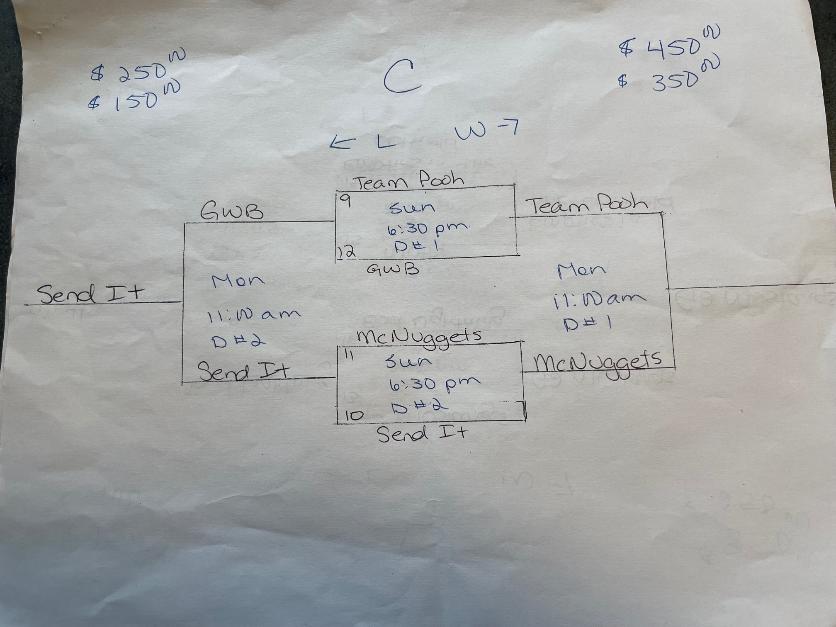 $ 250 00
$ 150 00
C
$ 450 00
$ 350 00
← L W →
Team Pooh
9
Sun
6:30 pm
D#1
12
GWB
GWB
Team Pooh
Mon
11:00 am
D#2
Send It
Mon
11:00 am
D#1
McNuggets
11
Sun
6:30 pm
D#2
10
Send It
Send It
McNuggets